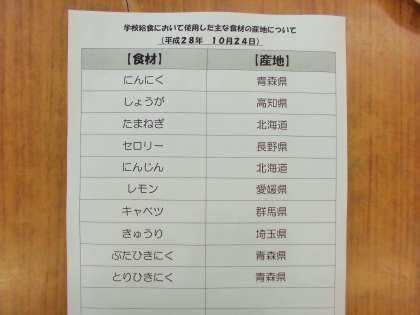 学校給食において使用した主な食材の産地について
（平成２８年　１０月２４日）
【食材】　【産地】
にんにく　青森県
しょうが　高知県
たまねぎ　北海道
セロリー　長野県
にんじん　北海道
レモン　愛媛県
キャベツ　群馬県
きゅうり　埼玉県
ぶたひきにく　青森県
とりひきにく　青森県